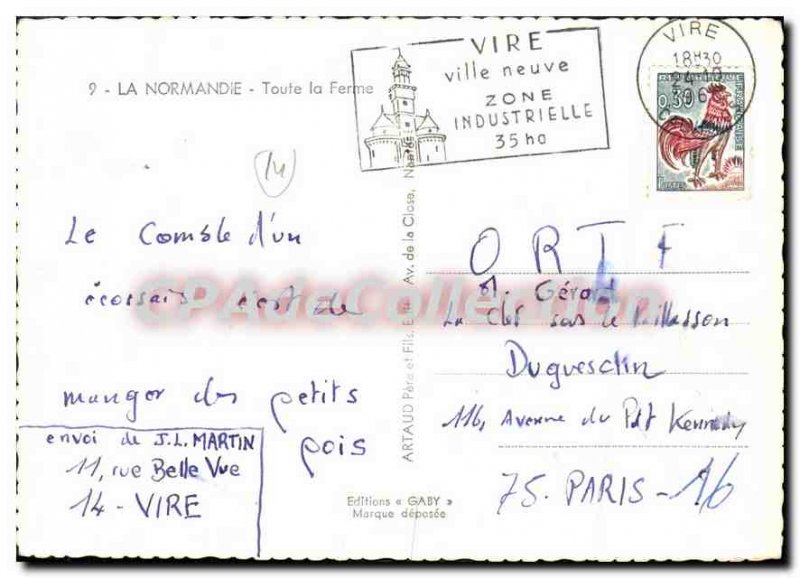 9 - LA NORMANDIE - Toute la Ferme
VIRE
ville neuve
ZONE
INDUSTRIELLE
35 ha
VIRE
18H30
196
0,30
POSTES
(14)
Le Comble d'un
écossais c'est de
manger des petits
pois
envoi de J.L. MARTIN
11, rue Belle Vue
14 - VIRE
ARTAUD Père et Fils, Edit. Av. de la Close, Nantes
O R T F
M. Gérard
La Clef sous le Paillasson
Duguesclin
116, Avenue du Pdt Kennedy
75. PARIS - 16
Editions « GABY »
Marque déposée
CPAdeCollection